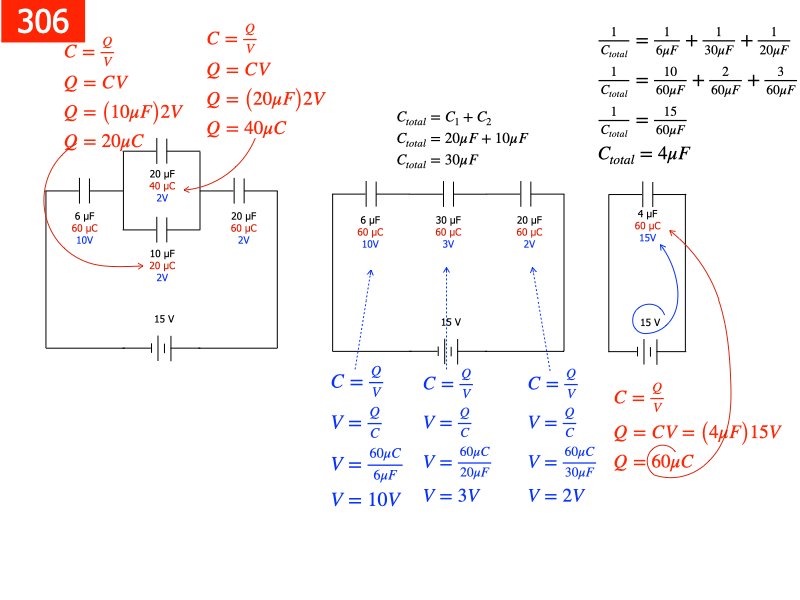 306
C = Q/V
Q = CV
Q = (10μF)2V
Q = 20μC
C = Q/V
Q = CV
Q = (20μF)2V
Q = 40μC
20 μF
40 μC
2V
6 μF
60 μC
10V
20 μF
60 μC
2V
10 μF
20 μC
2V
15 V
C_total = C₁ + C₂
C_total = 20μF + 10μF
C_total = 30μF
6 μF
60 μC
10V
30 μF
60 μC
3V
20 μF
60 μC
2V
15 V
C = Q/V
V = Q/C
V = 60μC/6μF
V = 10V
C = Q/V
V = Q/C
V = 60μC/20μF
V = 3V
C = Q/V
V = Q/C
V = 60μC/30μF
V = 2V
1/C_total = 1/6μF + 1/30μF + 1/20μF
1/C_total = 10/60μF + 2/60μF + 3/60μF
1/C_total = 15/60μF
C_total = 4μF
4 μF
60 μC
15V
15 V
C = Q/V
Q = CV = (4μF)15V
Q = 60μC